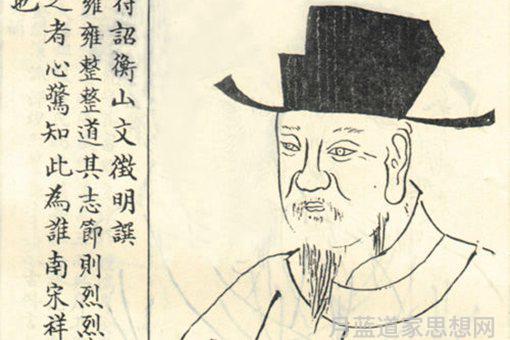 待詔衡山文徵明譔
雍雍整整道其志節則烈烈
之者心驚知此為誰南宋祥
也
月蓝道家思想网